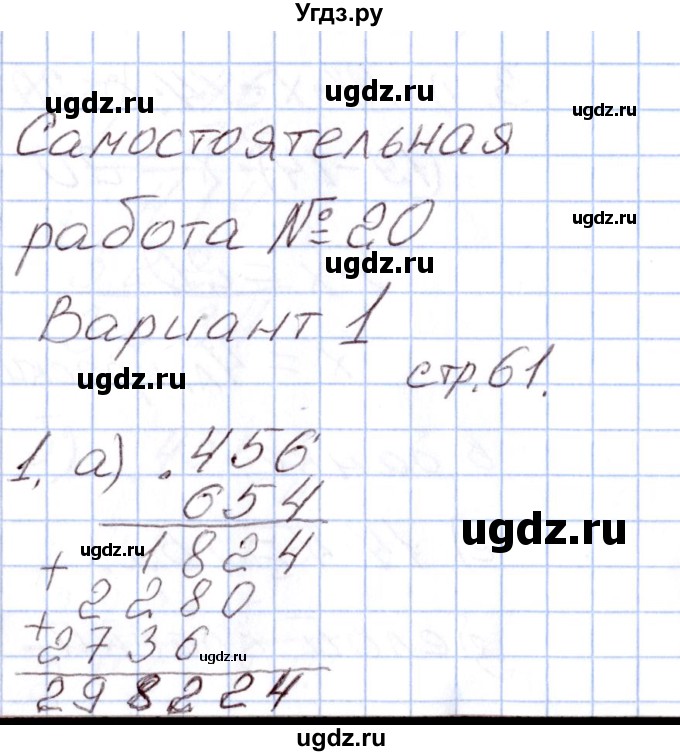 Угдз.ру
ugdz.ru
ugdz.ru
Самостоятельная
ugdz.ru
ugdz.ru
работа № 20
ugdz.ru
Вариант 1
ugdz.ru
стр. 61.
1. а) . 456
654
ugdz.ru
ugdz.ru
+ 1824
2280
+ 2736
ugdz.ru
298224
ugdz.ru